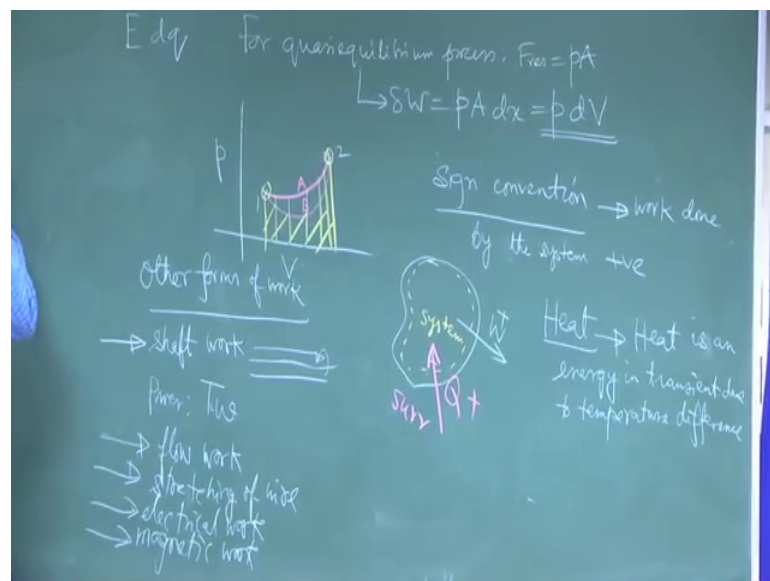 E dq
For quasiequilibrium process: Fres = pA
↳ δW = pA dx = p dV
p
1
A
B
2
V
Sign convention → work done
by the system +ve
Other forms of work
→ shaft work
Power: Tω
→ flow work
→ stretching of wire
→ electrical work
→ magnetic work
system
W+
Surr
Q +
Heat → Heat is an
energy in transient due
to temperature difference